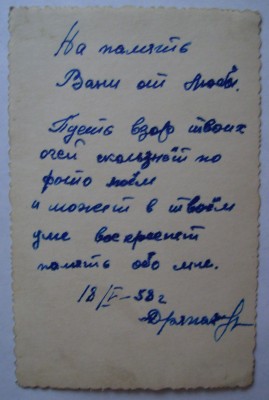 На память
Вани от Любы.
Пусть взор твоих
очей скользнёт по
фото моём
и может в твоём
уме воскреснет
память обо мне.
18/V-58г